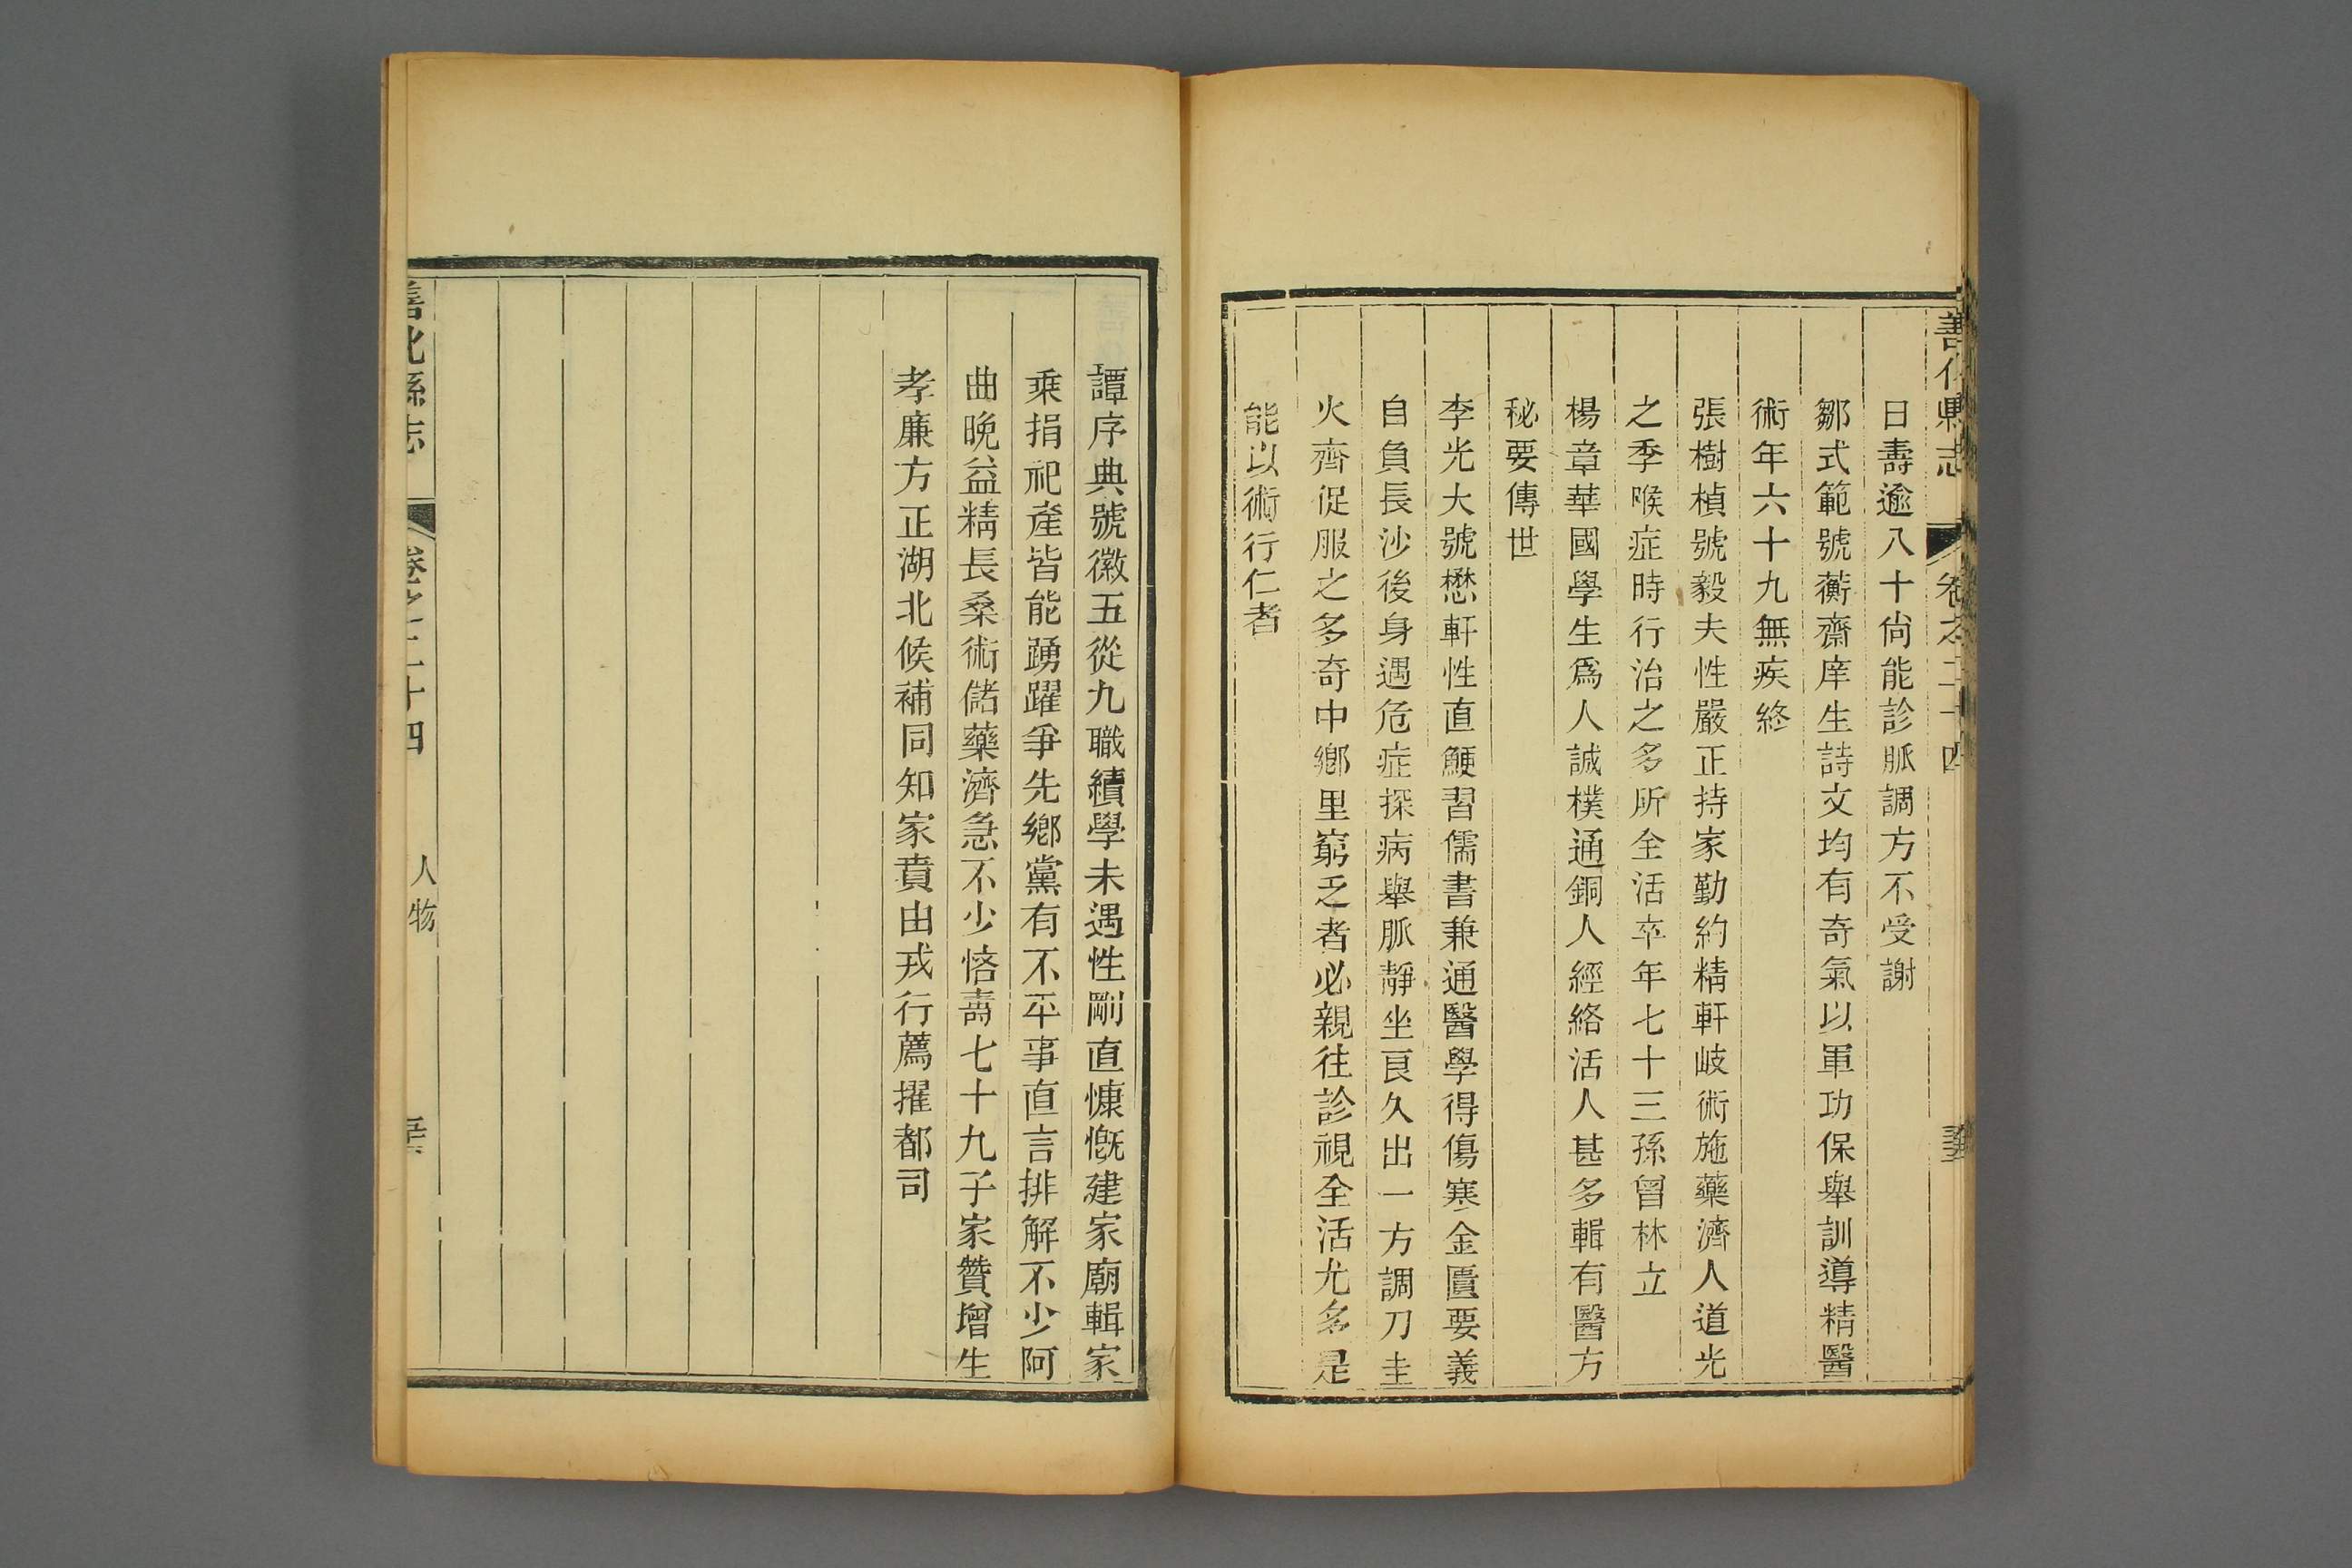 善化縣志 卷之二十四
日壽逾八十尙能診脈調方不受謝
鄒式範號蘅齋庠生詩文均有奇氣以軍功保舉訓導精醫
術年六十九無疾終
張樹楨號毅夫性嚴正持家勤約精軒岐術施藥濟人道光
之季喉症時行治之多所全活卒年七十三孫曾林立
楊章華國學生爲人誠樸通銅人經絡活人甚多輯有醫方
秘要傳世
李光大號懋軒性直鯁習儒書兼通醫學得傷寒金匱要義
自負長沙後身遇危症探病舉脈靜坐良久出一方調刀圭
火齊促服之多奇中鄉里窮乏者必親往診視全活尤多是
能以術行仁者
譚序典號徽五從九職績學未遇性剛直慷慨建家廟輯家
乘捐祀產皆能踴躍爭先鄉黨有不平事直言排解不少阿
曲晚益精長桑術儲藥濟急不少悋壽七十九子家贊增生
孝廉方正湖北候補同知家賁由戎行薦擢都司
善化縣志 卷之二十四 人物